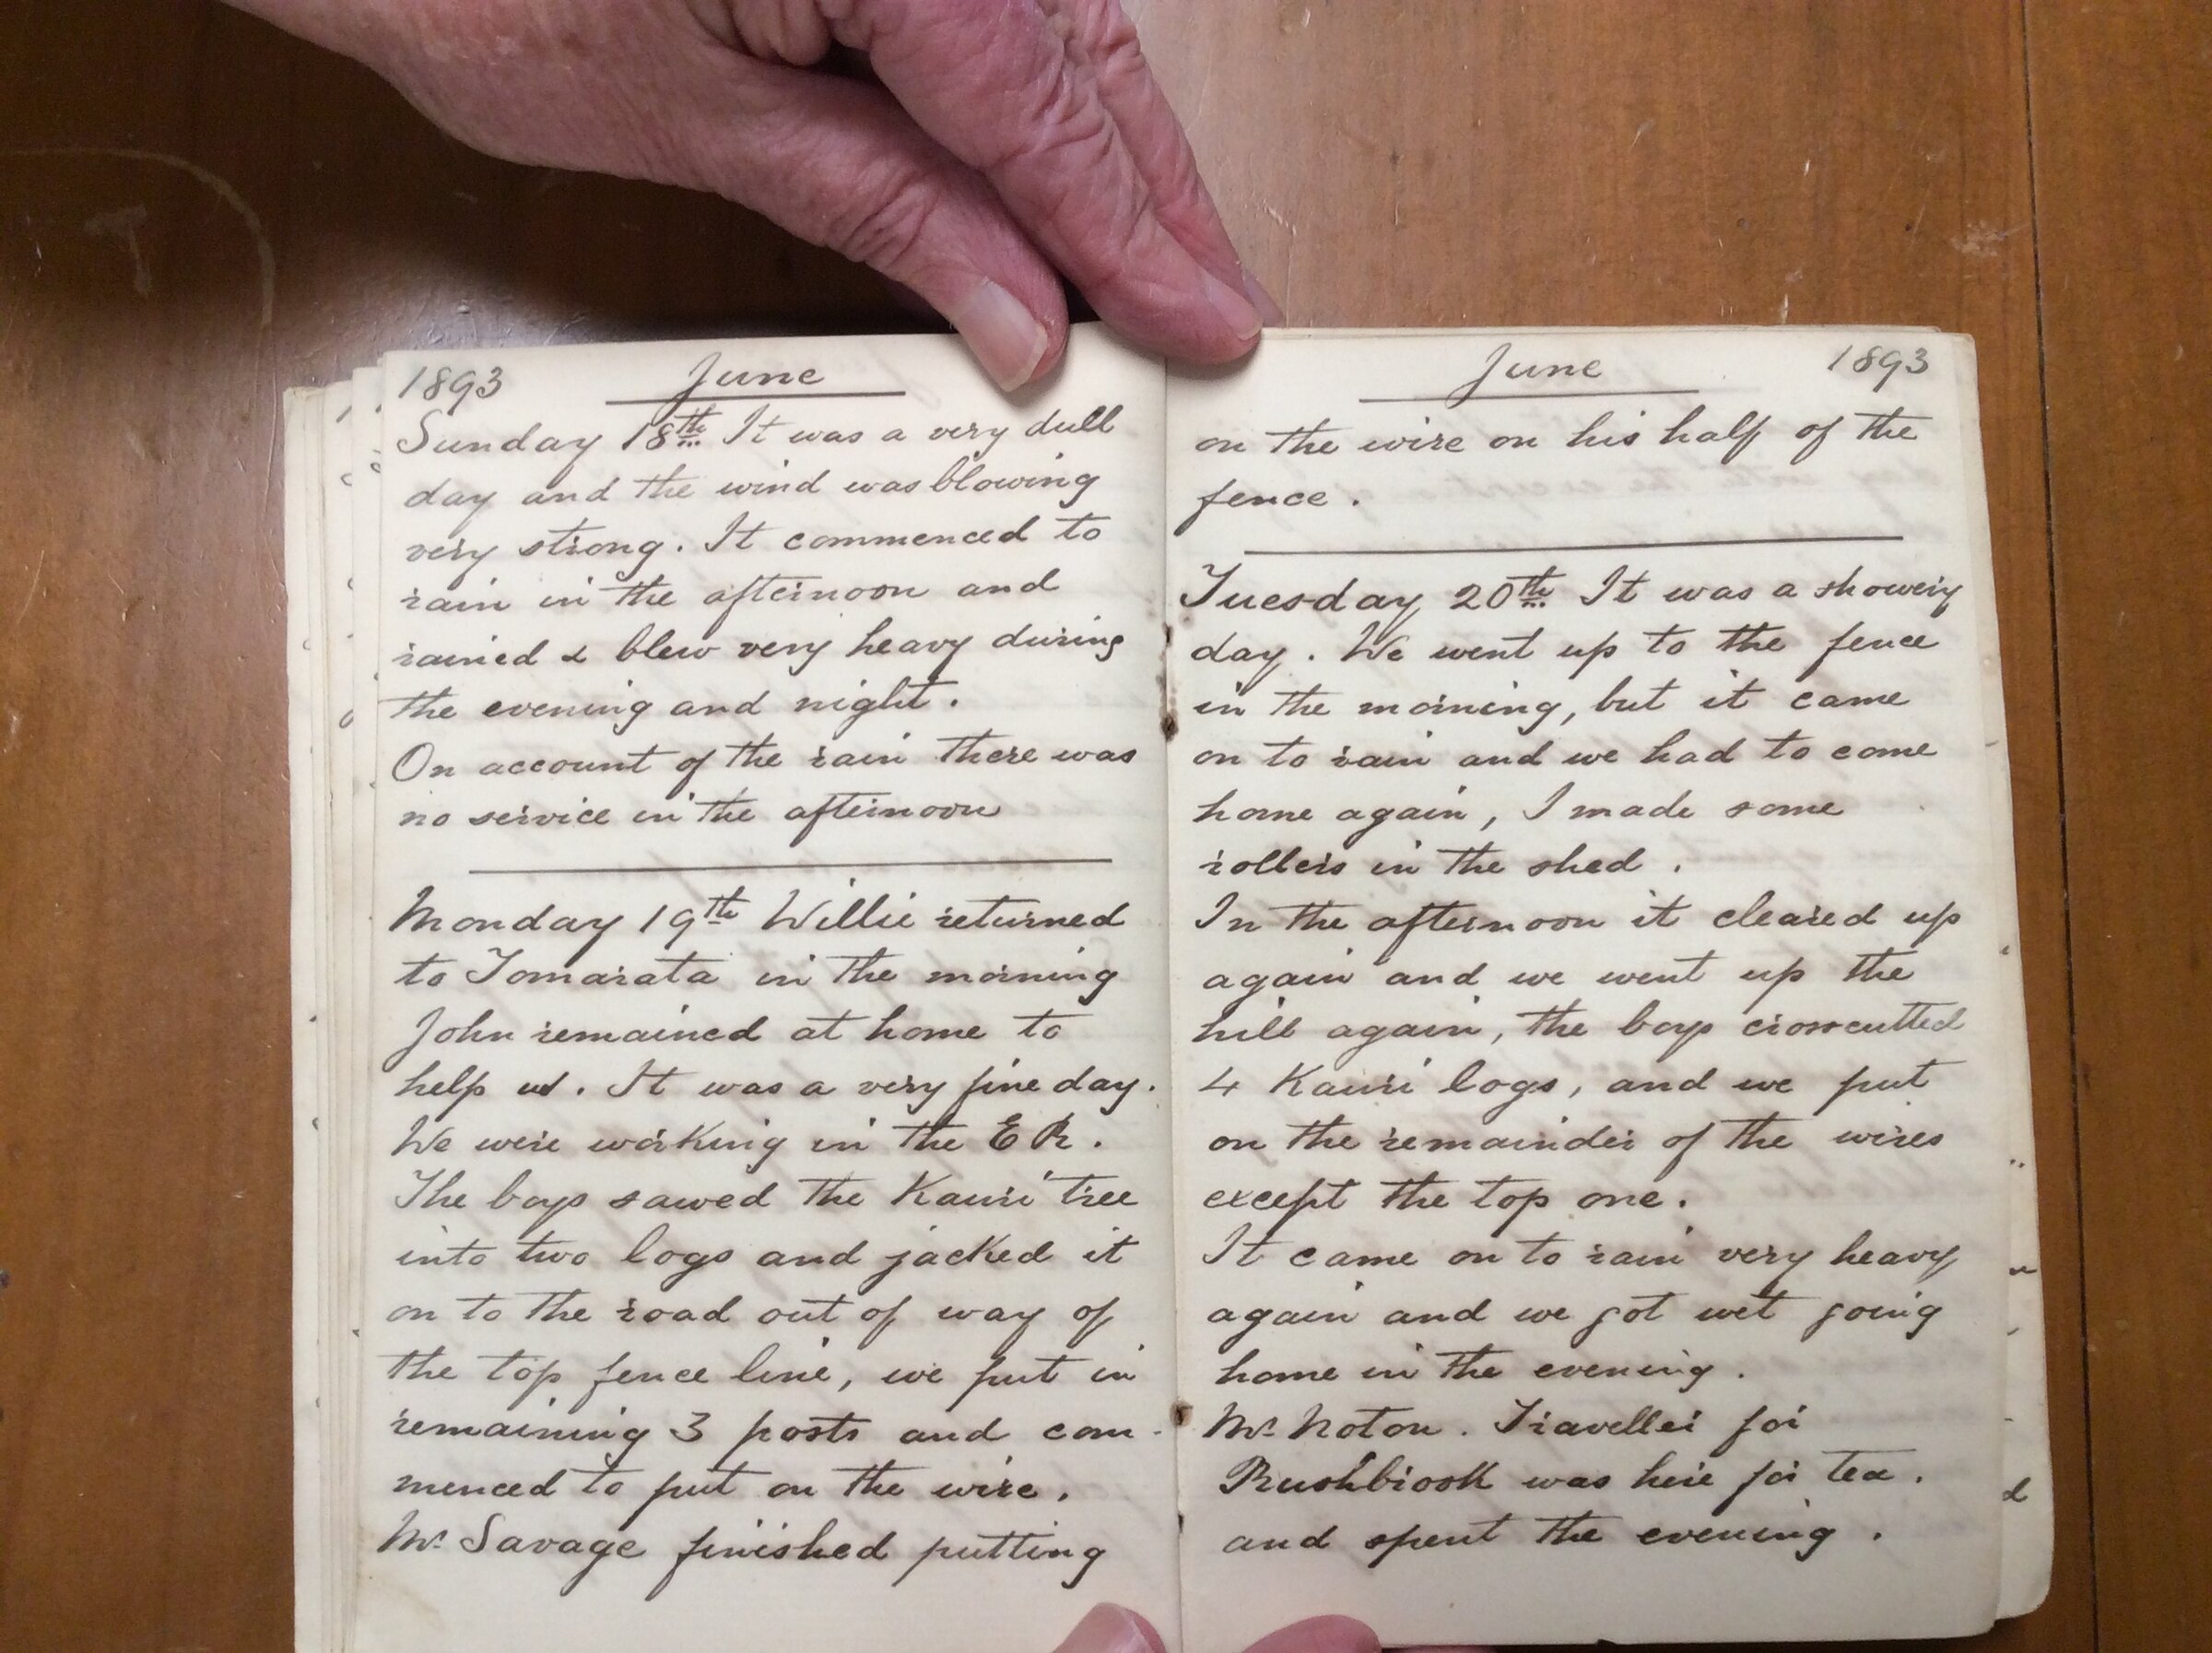 1893 June
Sunday 18th It was a very dull
day and the wind was blowing
very strong. It commenced to
rain in the afternoon and
rained & blew very heavy during
the evening and night.
On account of the rain there was
no service in the afternoon
Monday 19th Willie returned
to Tomarata in the morning
John remained at home to
help us. It was a very fine day.
We were working in the E R.
The boys sawed the Kauri tree
into two logs and jacked it
on to the road out of way of
the top fence line, we put in
remaining 3 posts and com-
menced to put on the wire.
Mr Savage finished putting
June 1893
on the wire on his half of the
fence.
Tuesday 20th It was a showery
day. We went up to the fence
in the morning, but it came
on to rain and we had to come
home again, I made some
rollers in the shed.
In the afternoon it cleared up
again and we went up the
hill again, the boys crosscutted
4 Kauri logs, and we put
on the remainder of the wires
except the top one.
It came on to rain very heavy
again and we got wet going
home in the evening.
Mr Noton. Traveller for
Rushbrook was here for tea.
and spent the evening.